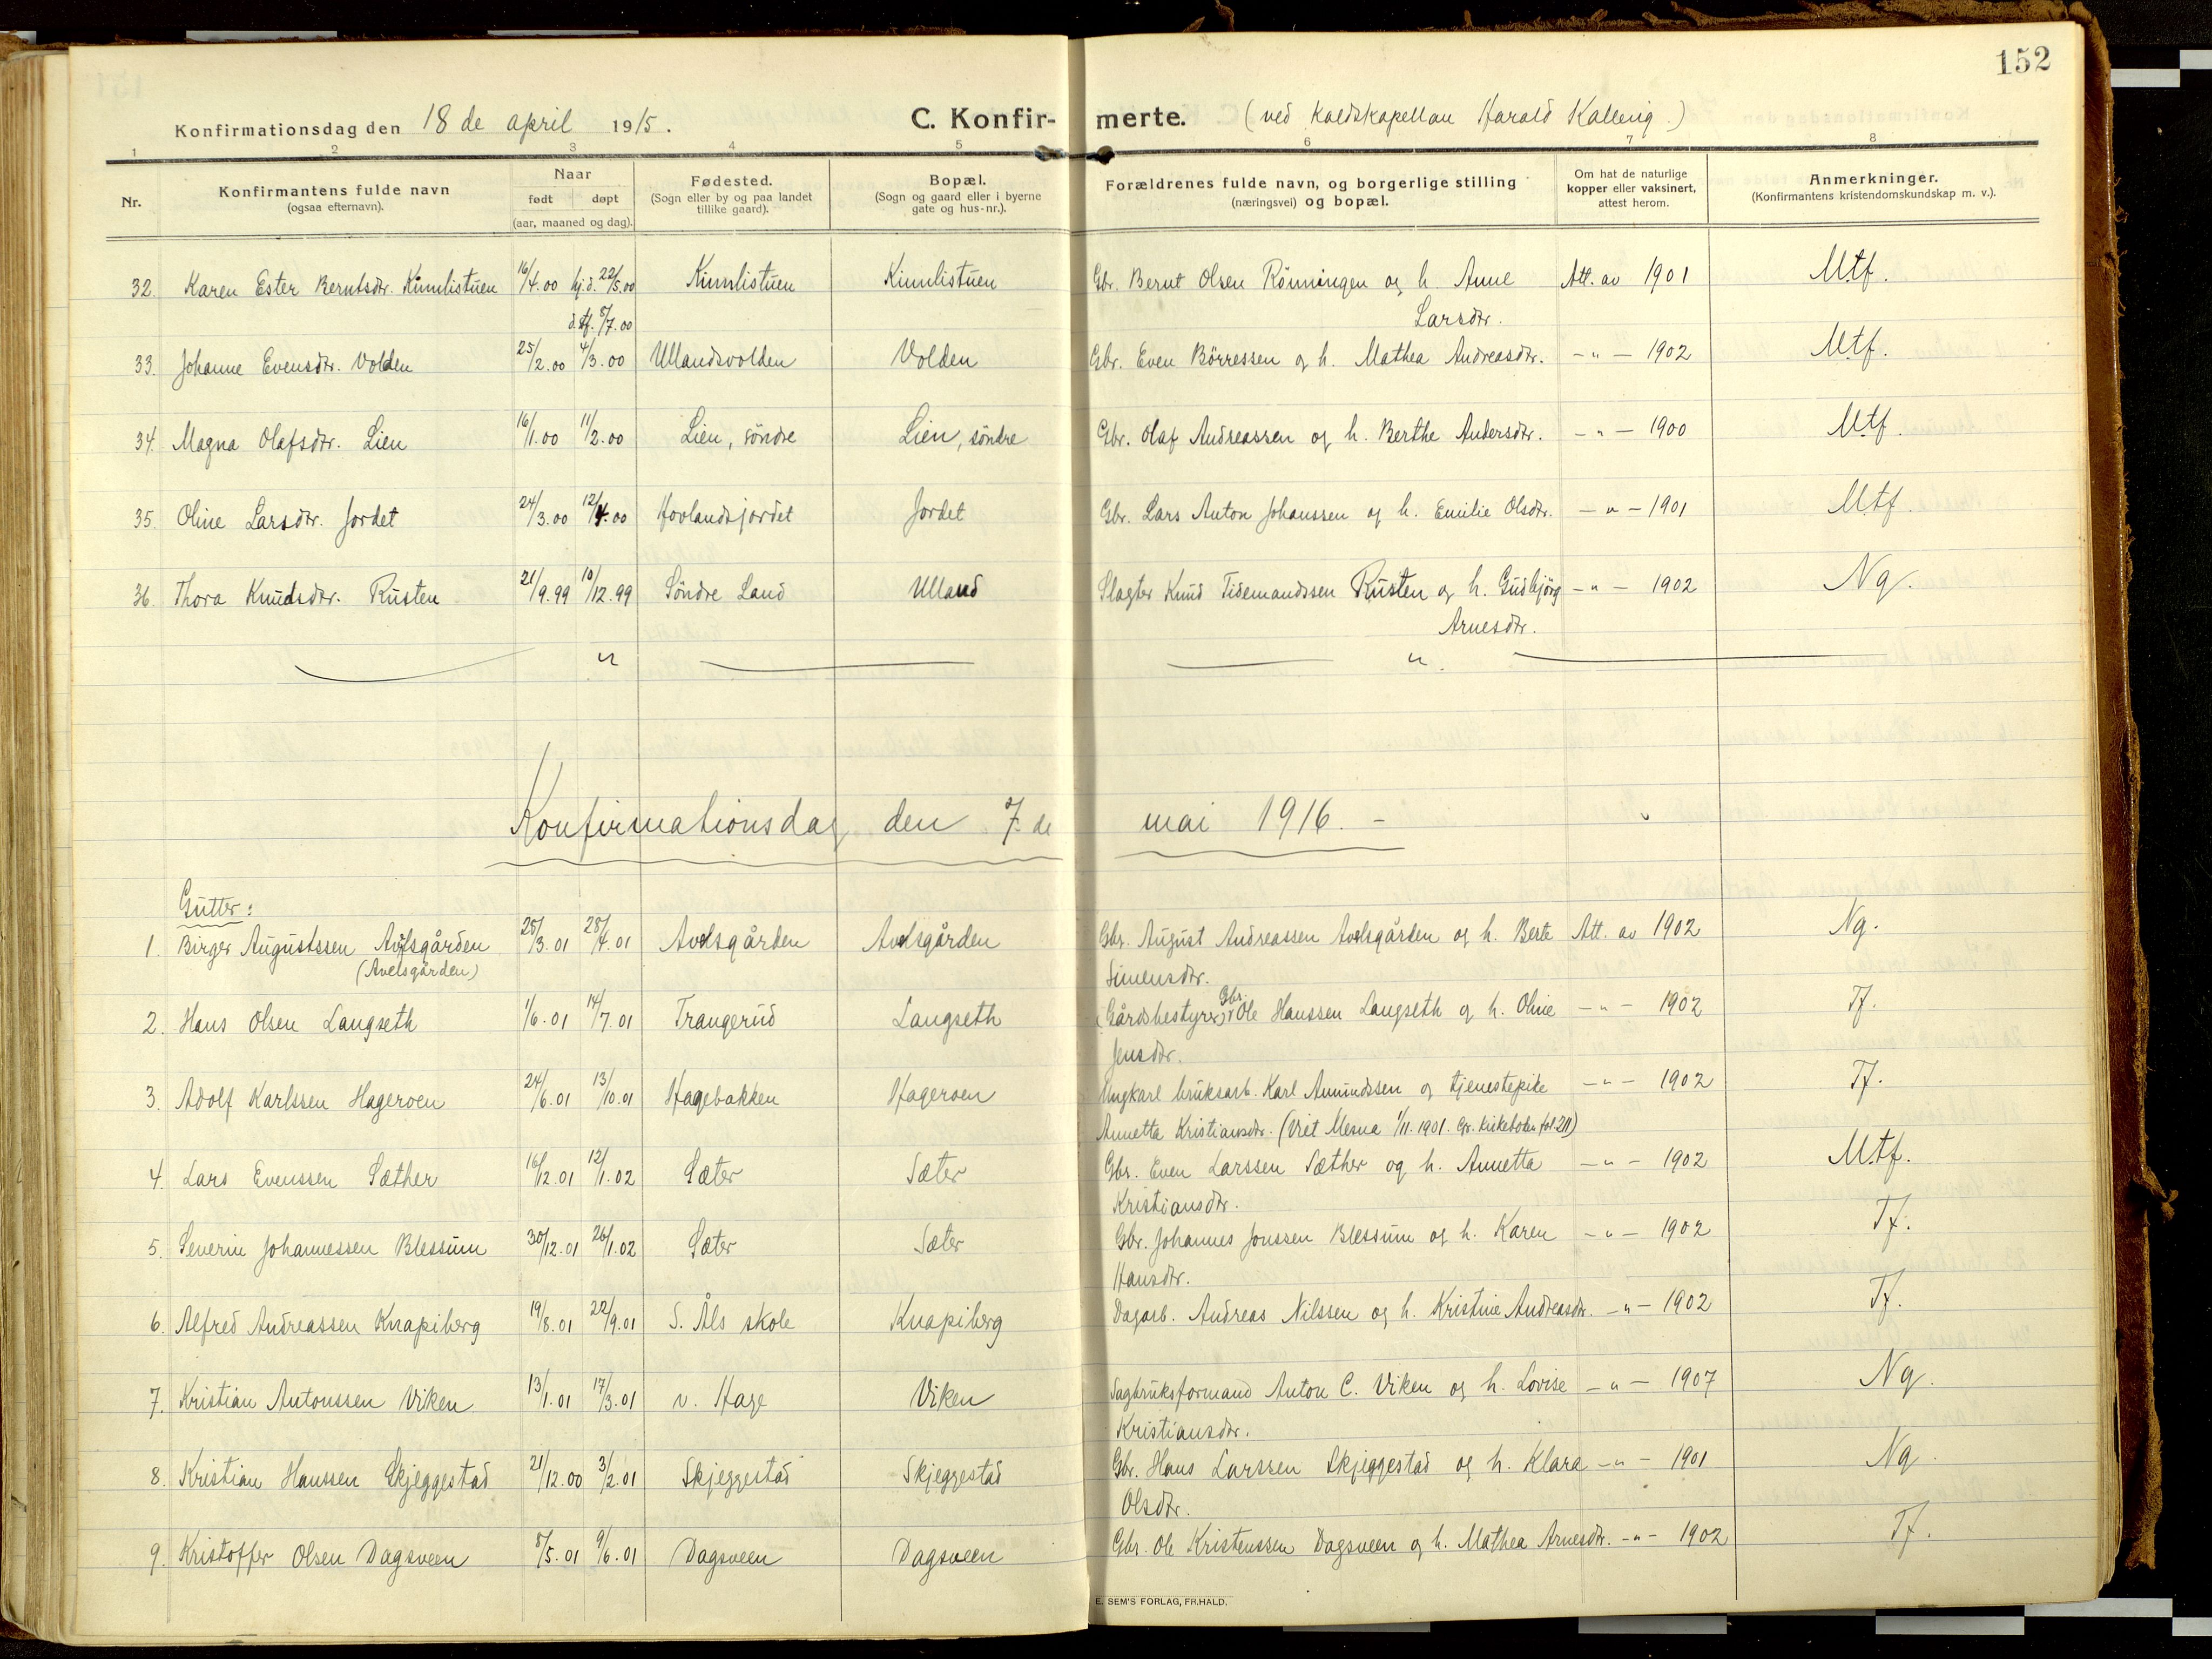 152
Konfirmationsdag den 18 de april 1915.
C. Konfir- merte. (ved Kaldskapellan Harald Kallevig.)
1 2 3 4 5 6 7 8
Nr.
Konfirmantens fulde navn
(ogsaa efternavn).
Naar
født døpt
(aar, maaned og dag).
Fødested.
(Sogn eller by og paa landet
tillike gaard).
Bopæl.
(Sogn og gaard eller i byerne
gate og hus-nr.).
Forældrenes fulde navn, og borgerlige stilling
(næringsvei) og bopæl.
Om hat de naturlige
kopper eller vaksinert,
attest herom.
Anmerkninger.
(Konfirmantens kristendomskundskap m. v.).
32. Karen Ester Berntsdtr. Kinnlistuen 16/4.00 hj.d. 22/5.00 Kinnlistuen Kinnlistuen Gbr. Bernt Olsen Rönningen og h. Anne Att. av 1901 Mtf.
d.stf. 8/7.00 Larsdtr.
33. Johanne Evensdtr. Volden 25/2.00 4/3.00 Ullandsvolden Volden Gbr. Even Börressen og h. Mathea Andreasdtr. -"- 1902 Mtf.
34. Magna Olafsdtr. Lien 16/1.00 11/2.00 Lien, söndre Lien, söndre Gbr. Olaf Andreassen og h. Berthe Andersdtr. -"- 1900 Mtf.
35. Oline Larsdtr. Jordet 24/3.00 12/4.00 Hovlandsjordet Jordet Gbr. Lars Anton Johanssen og h. Emilie Olsdtr. -"- 1901 Mtf.
36. Thora Knudsdtr. Rusten 21/9.99 10/12.99 Söndre Land Ulland Slagter Knud Tidemandssen Rusten og h. Gudbjörg -"- 1902 Ng.
Arnesdtr.
" "
Konfirmationsdag den 7. de mai 1916. -
Gutter:
1. Birger Augustssen Avlsgården 25/3.01 28/4.01 Avelsgården Avelsgården Gbr. August Andreassen Avelsgården og h. Berte Att. av 1902 Ng.
(Avelsgården) Simensdtr.
Gbr.
2. Hans Olsen Langseth 1/6.01 14/7.01 Trangerud Langseth (Gårdsbestyrer) Ole Hanssen Langseth og h. Oline -"- 1902 Tf.
Jensdtr.
3. Adolf Karlssen Hageroen 24/6.01 13/10.01 Hagebakken Hageroen Ungkarl bruksarb. Karl Amundssen og tjenestepike -"- 1902 Tf.
Annetta Kristiansdtr. (Viet Mesna 1/11.1901. Cfr. kirkeboken fol 211)
4. Lars Evenssen Sæther 16/12.01 12/1.02 Sæter Sæter Gbr. Even Larssen Sæther og h. Annetta -"- 1902 Mtf.
Kristiansdtr.
5. Severin Johannessen Blessum 30/12.01 26/1.02 Sæter Sæter Gbr. Johannes Jonssen Blessum og h. Karen -"- 1902 Tf.
Hansdtr.
6. Alfred Andreassen Knapiberg 19/8.01 22/9.01 S. Åls skole Knapiberg Dagarb. Andreas Nilssen og h. Kristine Andreasdtr. -"- 1902 Tf.
7. Kristian Antonssen Viken 13/1.01 17/3.01 v. Hage Viken Sagbruksformand Anton C. Viken og h. Lovise -"- 1907 Ng.
Kristiansdtr.
8. Kristian Hanssen Skjeggestad 21/12.00 3/2.01 Skjeggestad Skjeggestad Gbr. Hans Larssen Skjeggestad og h. Klara -"- 1901 Ng.
Olsdtr.
9. Kristoffer Olsen Dagsveen 8/5.01 9/6.01 Dagsveen Dagsveen Gbr. Ole Kristenssen Dagsveen og h. Mathea Arnesdtr. -"- 1902 Tf.
E. SEM'S FORLAG, FR.HALD.